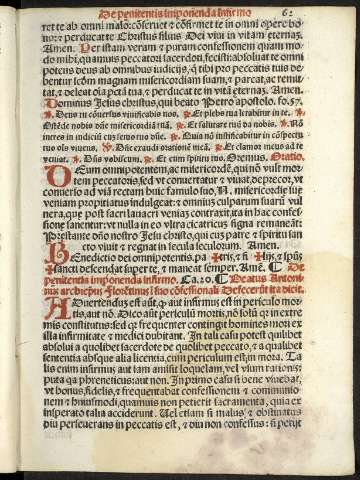 De penitentis imponenda infirmo 62
ret te ab omni malo: cōseruet ⁊ cōfirmet te in omni opere bo-
no: ⁊ perducat te Christus filius Dei viui in vitam eternaʒ.
Amen. Per istam veram ⁊ puram confessionem quam mo-
do mihi, quamuis peccatori fecisti: absoluat te omni
potens deus ab omnibus iudicijs, q̄ tibi pro peccatis tuis de-
bentur scḋm magnam misericordiam suam, ⁊ parcat, ac remit-
tat, ⁊ deleat oīa pctā tua, ⁊ perducat te in vitā eternaʒ. Amen.
Dominus Jesus christus, qui beato Petro apostolo. fo. 57.
℣. Deus tu cōuersus viuificabis nos. ℟. Et plebs tua letabitur in te.
℣. Ostēde nobis dn̄e misericordiā tuā. ℟. Et salutare tuū da nobis. ℣. Nō
intres in iudiciū cū seruo tuo dn̄e. ℟. Quia nō iustificabitur in cōspectu
tuo oīs viuens. ℣. Dn̄e exaudi orationē meā. ℟. Et clamor meus ad te
veniat. ℣. Dn̄s vobiscum. ℟. Et cum spiritu tuo. Oremus. Oratio.
DEum omnipotentem, ac misericordē, qui nō vult mor-
tem peccatoris, sed vt conuertatur ⁊ viuat, deprecor, vt
conuerso ad viā rectam huic famulo suo, N. misericordie sue
veniam propitiatus indulgeat: ⁊ omnius culparum suarū vul
nera, que post sacri lauacri veniaʒ contraxit, ita in hac confes-
sione sanentur: vt nulla in eo vltra cicatricis signa remaneāt:
Prestante dn̄o nostro Jesu christo, qui cuʒ patre ⁊ spiritu san
cto viuit ⁊ regnat in secula seculorum. Amen.
BEnedictio dei omnipotentis. pa✠tris, ⁊ fi✠lij, ⁊ sp̄us✠
sancti descendat super te, ⁊ maneat semper. Amē. ¶ De
penitentia imponenda infirmo. Ca. 20. ¶ Beatus Antoni-
nus archiep̄us Florētinus ī suo cōfessionali Defecerūt ita dicit.
ADuertendus est aūt, q̄ aut infirmus est in periculo mor-
tis, aut nō. Dico aūt periculū mortis, nō solū q̄ in extre
mis constitutus: sed q̄ frequenter contingit homines mori ex
illa infirmitate ⁊ medici dubitant. In tali casu potest quilibet
absolui a quolibet sacerdote de quolibet peccato, ⁊ a qualibet
sententia absque alia licentia, cum periculum est in mora. Ta
lis enim infirmus aut iam amisit loquelam, vel vsum rationis:
puta qa phreneticus: aut non. In primo casu si bene viuebat,
vt bonus fidelis, ⁊ frequentabat confessionem ⁊ communio-
nem ⁊ huiusmodi, quamuis non petierit sacramenta, quia ex
insperato talia acciderunt. Uel etiam si malus ⁊ obstinatus
diu perseuerans in peccatis est, ⁊ diu non confessus: si petijt